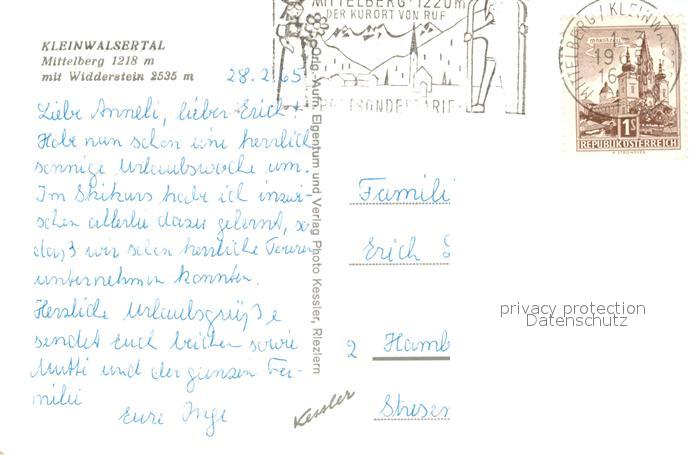 KLEINWALSERTAL
Mittelberg 1218 m
mit Widderstein 2535 m
28.2.65
Liebe Anneli, lieber Erich!
Habe nun schon eine herrlich
sonnige Urlaubswoche um.
Im Skikurs habe ich inzwi-
schen allerlei dazu gelernt, so
daß wir schon herrliche Touren
unternehmen konnten.
Herzliche Urlaubsgrüße
sendet Euch beiden sowie
Mutti und der ganzen Fa-
milie
Eure Inge
Orig.-Aufn. Eigentum und Verlag Photo Kessler, Riezlern
Kessler
MITTELBERG 1220m
DER KURORT VON RUF
MITTELBERG / KLEINWA
1S
REPUBLIK ÖSTERREICH
Famili
Erich
2 Hamb
Stresem
privacy protection
Datenschutz